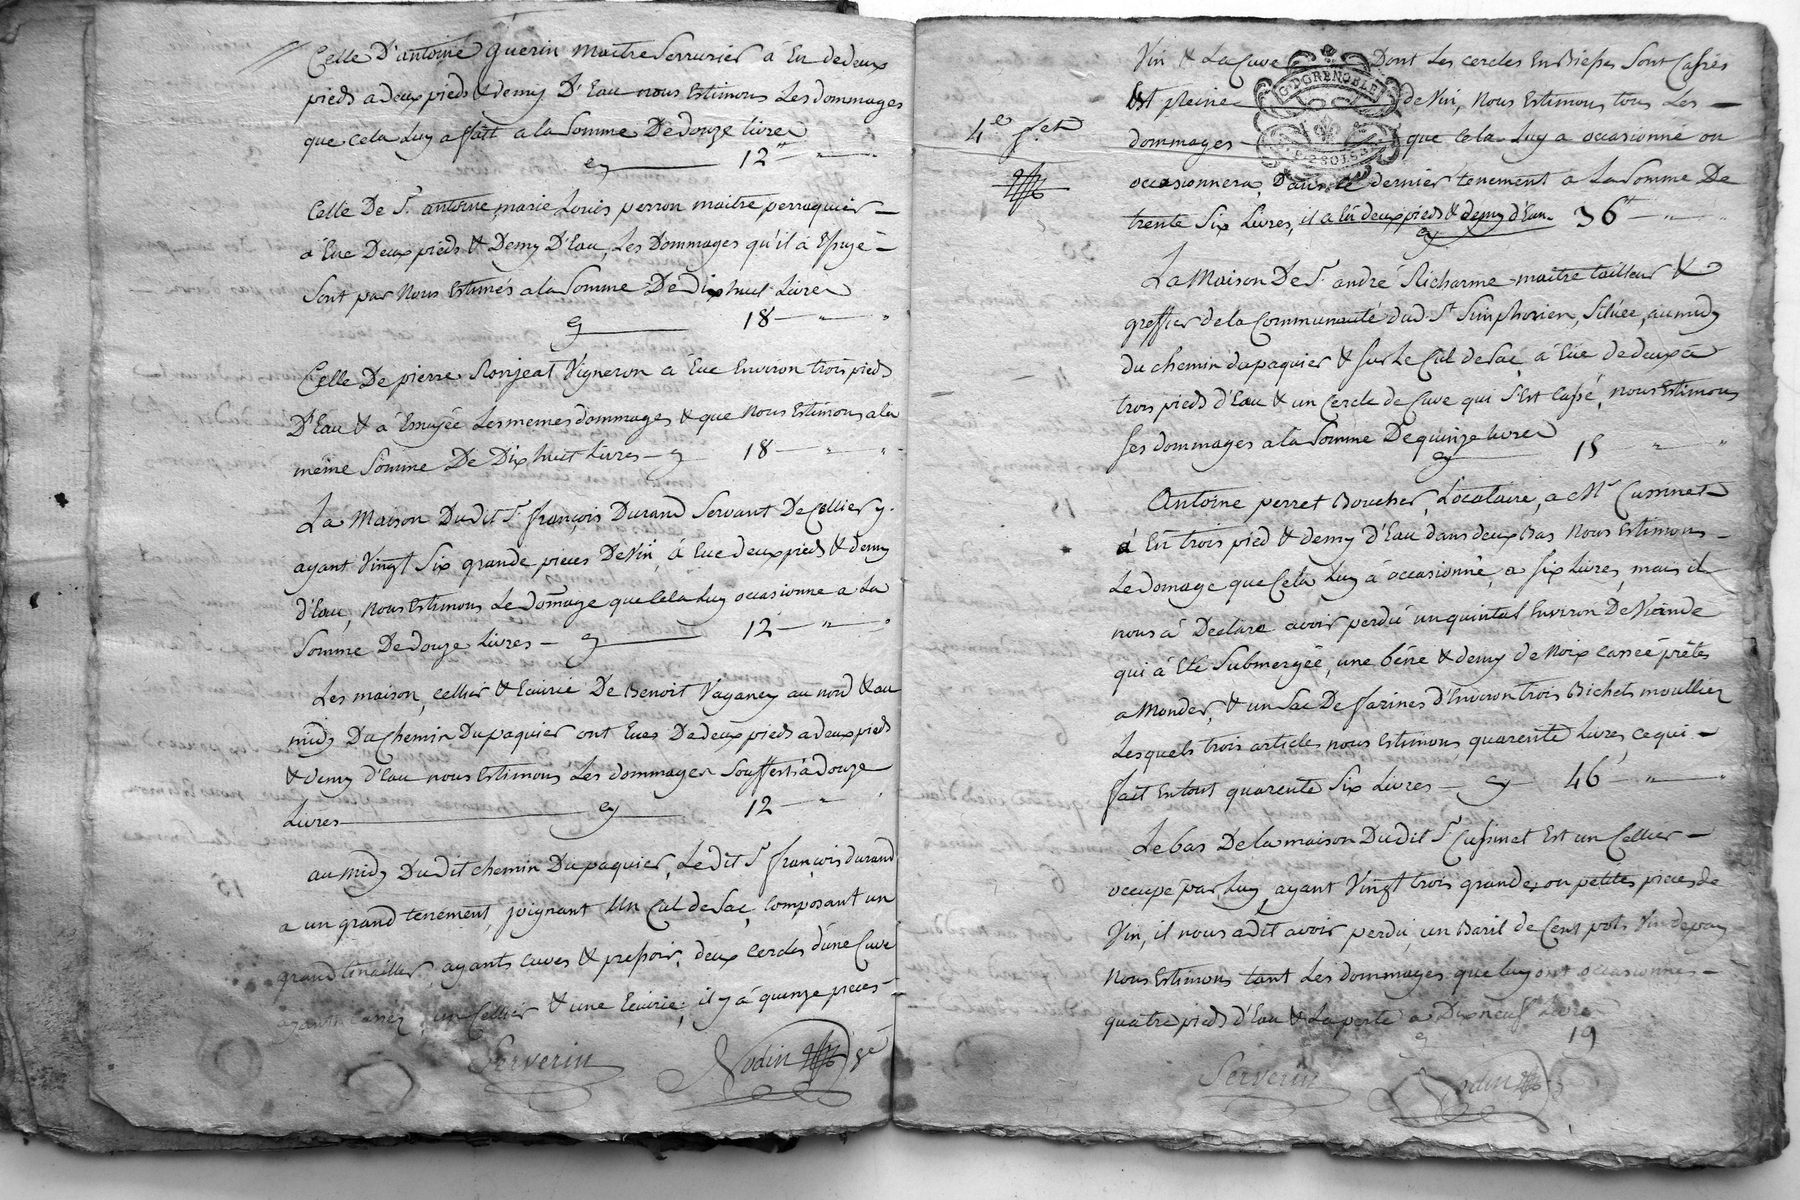 Celle D'antoine Guerin Maitre Serrurier à Eu de deux
pieds a deux pieds & demy D'Eau nous Estimons Les dommages
que cela Luy a fait a la Somme De douze livres
12
Celle De Sr. antoine marie Louis perron maitre perruquier
à Eue Deux pieds & Demy D'Eau, Les Dommages qu'il à Essuyé
Sont par Nous Estimés a la Somme De Dix huit Livres
18
Celle De pierre Ronjeat Vigneron à Eue Environ trois pieds
D'Eau & à Essuyée Les memes dommages & que Nous Estimons a la
même Somme De Dix huit Livres 18
La Maison Dudit Sr. françois Durand Servant De Cellier y
ayant Vingt Six grande pieces De Vin, à Eue deux pieds & demy
d'Eau, Nous Estimons Le domage que Cela Luy occasionne a La
Somme De douze Livres 12
Les maison, cellier & Ecurie De Benoit Vaganey au nord & au
midy Du Chemin Du paquier ont Eues De deux pieds a deux pieds
& demy d'Eau nous Estimons Les dommages Soufferts à Douze
Livres 12
au midy Dudit chemin Du paquier, Ledit Sr. françois durand
a un grand tenement, joignant Un Cul de Sac, Composant un
grand tinallier, ayants cuves & pressoir, deux cercles d'une Cuve
ayants cassez, un Cellier & une Ecurie, il y à quinze pieces
Serverin Nodin gé
Vin & La Cuve Dont Les cercles En Bieses Sont Cassés
Est pleine de Vin, Nous Estimons tous Les
dommages que cela Luy a occasionné ou
occasionnera, Dans Ce dernier tenement a La Somme De
trente Six Livres, il a Eû deux pieds & demy d'Eau 36
4e. fet
G. D GRENOBLE
La Maison De Sr. andré Richarme maitre tailleur &
greffier de la Communauté dud. St. Simphorien, Située, au midy
du chemin du paquier & sur Le Cul de Sac, à Eûe de deux à
trois pieds d'Eau & un Cercle de Cuve qui S'Est Cassé, nous Estimons
Ses dommages a la Somme De quinze livres 15
Antoine perret Boucher, Locataire, a Mr. Cussinet
à Eû trois pied & demy d'Eau dans deux Bas Nous Estimons
Le domage que Cela Luy à occasionné, a Six Livres, mais il
nous à Declaré avoir perdû un quintal Environ De Viande
qui à Eté Submergée, une béne & demy de Noix cassée prêtes
a Monder, & un Sac De farines d'Environ trois Bichets mouillier
Lesquels trois articles nous Estimons quarente Livres, ce qui
fait En tout quarente Six Livres 46
Le bas De la maison Dudit Sr. Cussinet Est un Cellier
occupé par Luy, ayant Vingt trois grandes ou petites pieces de
Vin, il nous a dit avoir perdu, un Baril de Cent pots Vin de pay
Nous Estimons tant Les dommages que luy ont occasionnés
quatre pieds d'Eau & La perte a Dix neuf Livres
19
Serverin Nodin